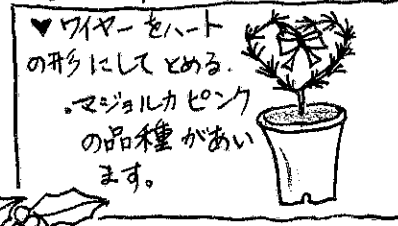 ▼ワイヤーをハート
の形にしてとめる.
・マジョルカピンク
の品種があい
ます。